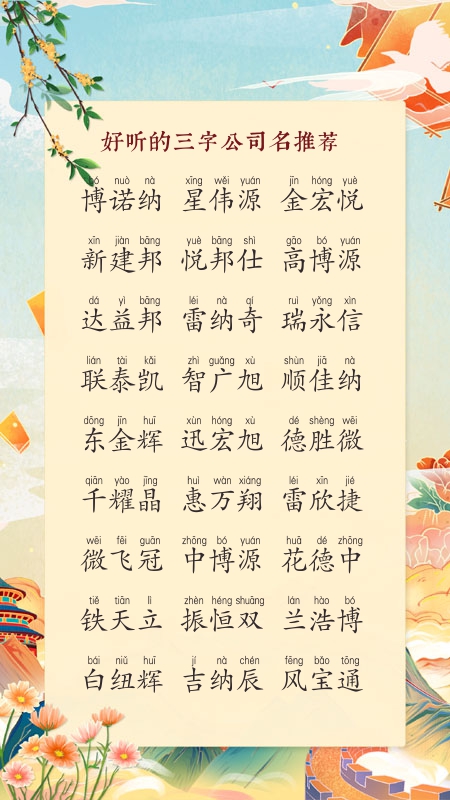 好听的三字公司名推荐
bó nuò nà xīng wěi yuán jīn hóng yuè
博诺纳 星伟源 金宏悦
xīn jiàn bāng yuè bāng shì gāo bó yuán
新建邦 悦邦仕 高博源
dá yì bāng léi nà qí ruì yǒng xìn
达益邦 雷纳奇 瑞永信
lián tài kǎi zhì guǎng xù shùn jiā nà
联泰凯 智广旭 顺佳纳
dōng jīn huī xùn hóng xù dé shèng wēi
东金辉 迅宏旭 德胜微
qiān yào jīng huì wàn xiáng léi xīn jié
千耀晶 惠万翔 雷欣捷
wēi fēi guān zhōng bó yuán huā dé zhōng
微飞冠 中博源 花德中
tiě tiān lì zhèn héng shuāng lán hào bó
铁天立 振恒双 兰浩博
bái niǔ huī jí nà chén fēng bǎo tōng
白纽辉 吉纳辰 风宝通